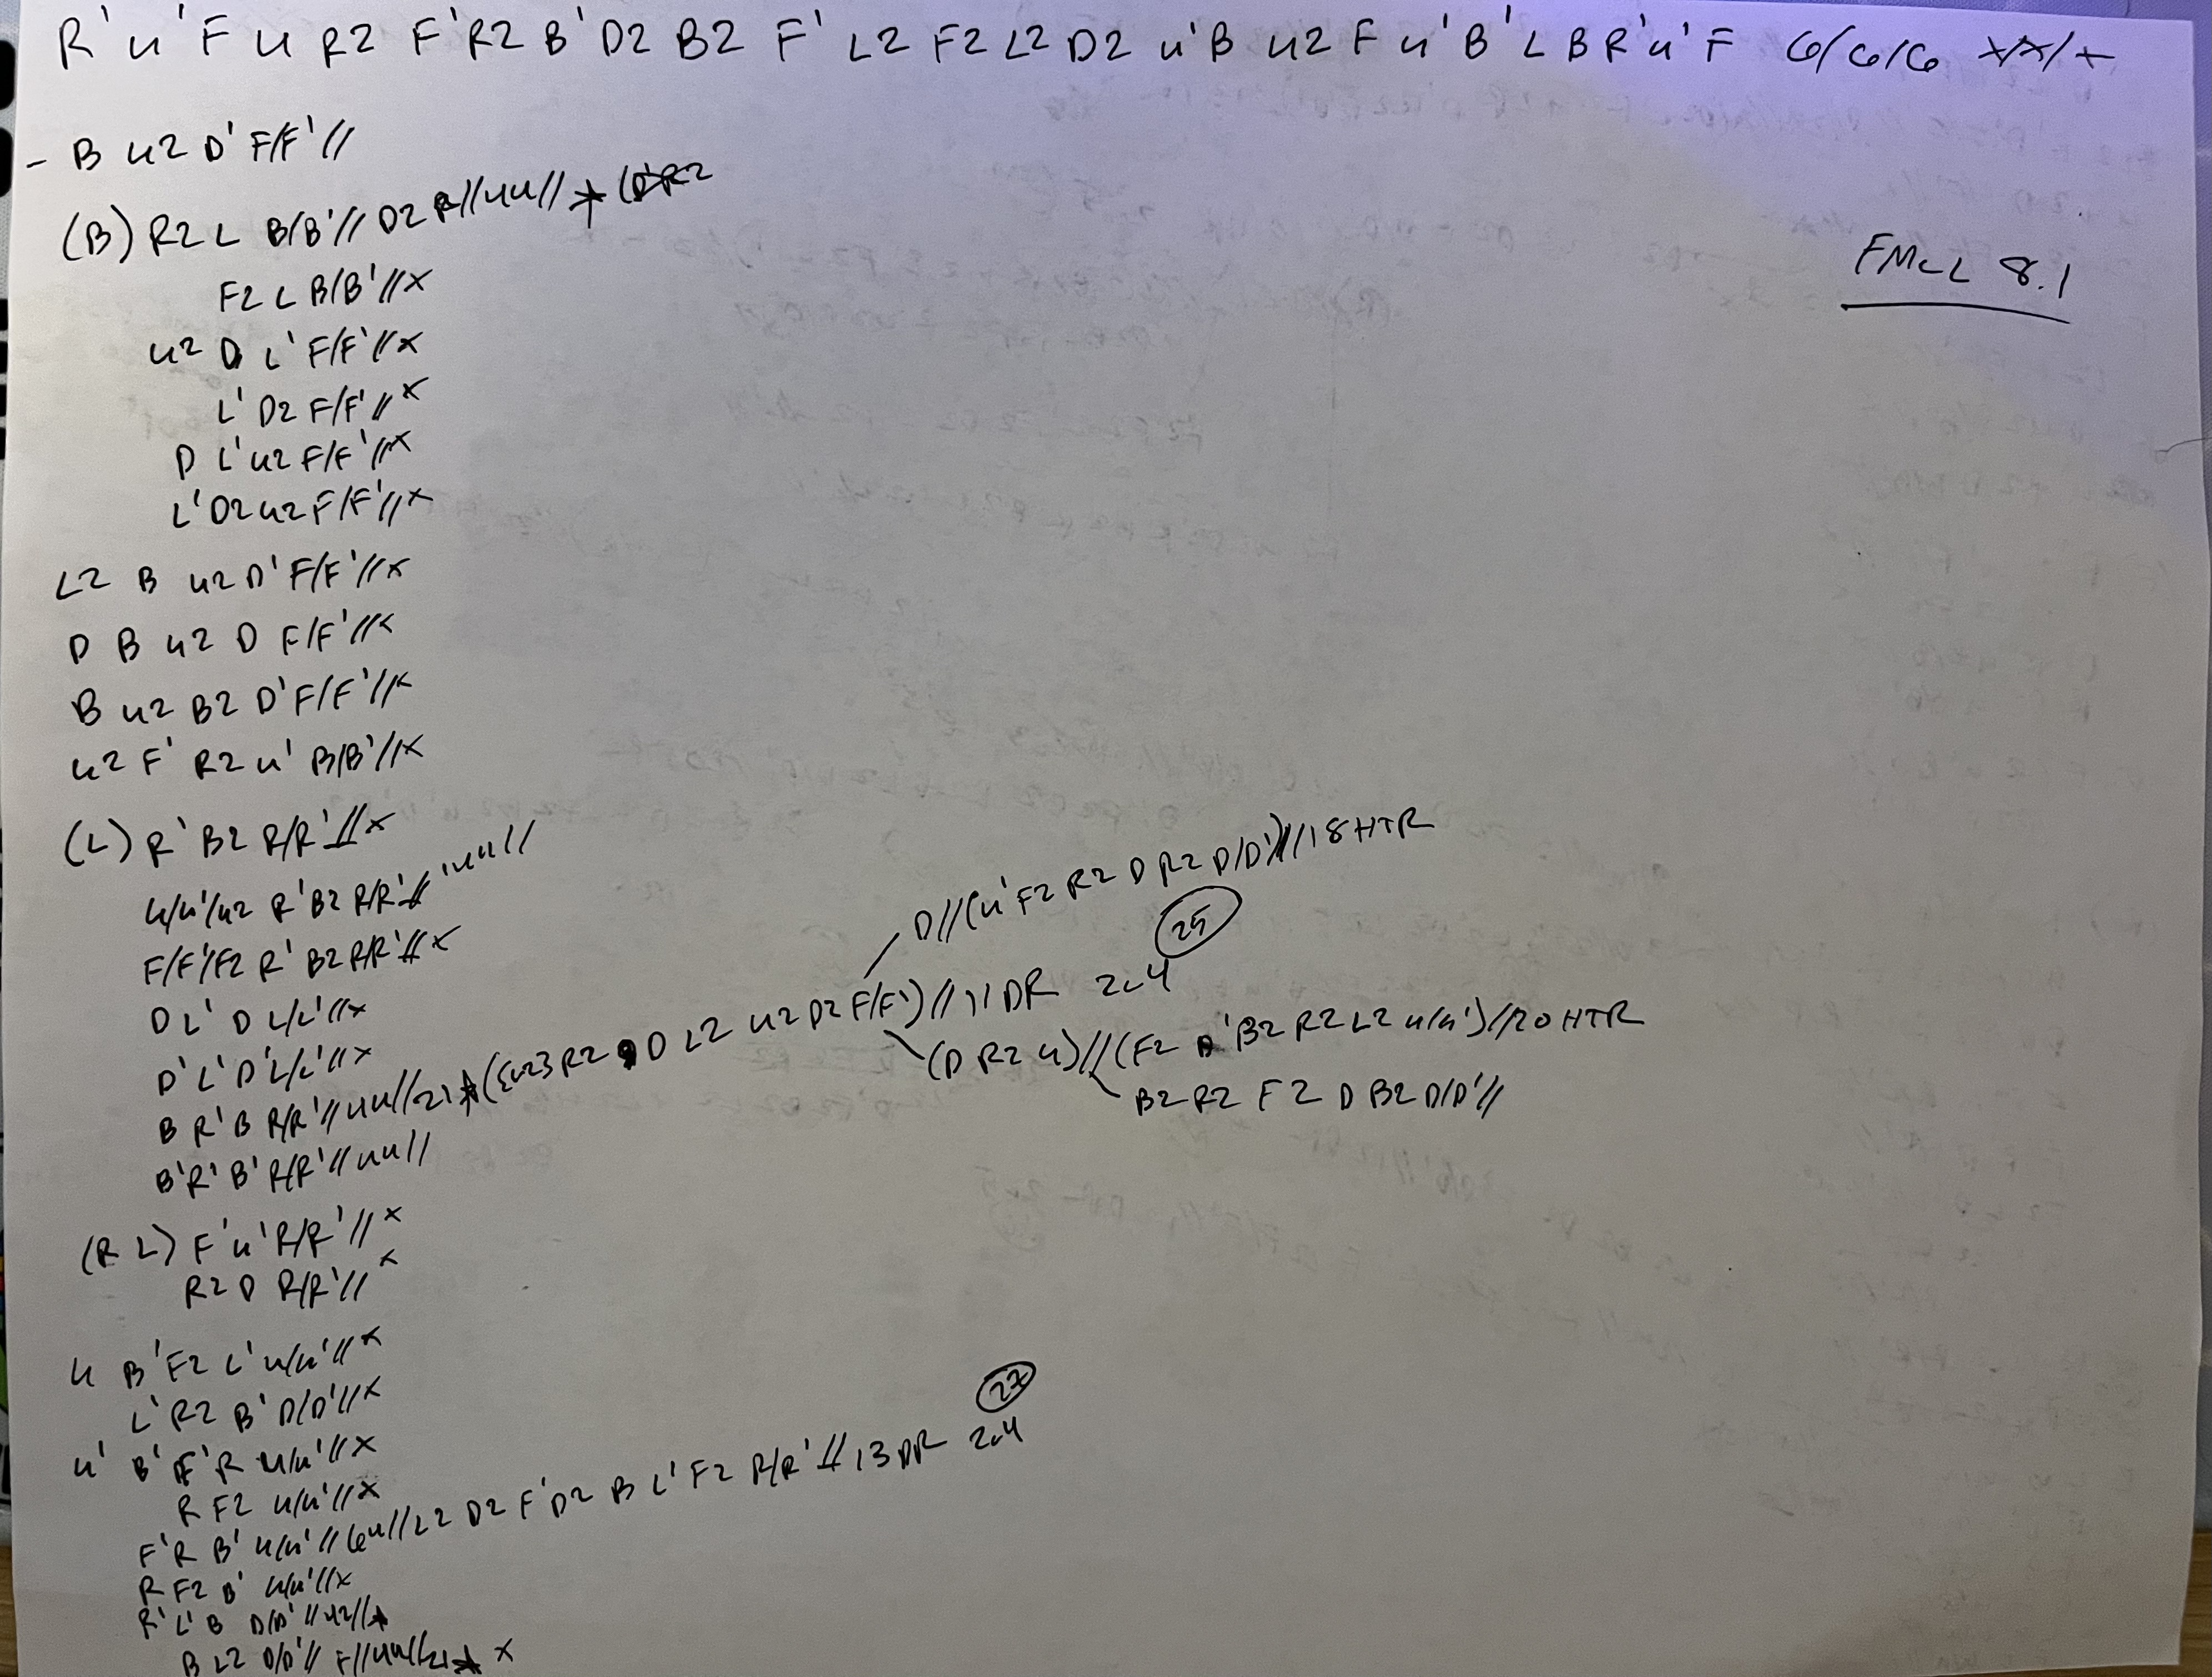 R' u' F u R2 F' R2 B' D2 B2 F' L2 F2 L2 D2 u' B u2 F u' B' L B R' u' F 6/6/6 x/x/x
- B u2 D' F/F' //
(B) R2 L B/B' // D2 R//44//
F2 L B/B' // x
FMCL 8.1
u2 D L' F/F' // x
L' D2 F/F' // x
D L' u2 F/F' // x
L' D2 u2 F/F' // x
L2 B u2 D' F/F' // x
D B u2 D F/F' // x
B u2 B2 D' F/F' // x
u2 F' R2 u' B/B' // x
(L) R' B2 R/R' // x
u/u'/u2 R' B2 R/R' // 44//
F/F'/F2 R' B2 R/R' // x
D//(u' F2 R2 D R2 D/D')//18 HTR
D L' D L/L' // x
25
D' L' D' L/L' // x
B R' B R/R' // 44//21 ({u2} R2 D L2 u2 D2 F/F') // 11 DR 2c4
(D R2 u)//(F2 D' B2 R2 L2 u/u')//20 HTR
B2 R2 F2 D B2 D/D' //
B' R' B' R/R' // 44//
(R L) F' u' R/R' // x
R2 D R/R' // x
u B' F2 L' u/u' // x
L' R2 B' D/D' // x
27
u' B' F' R u/u' // x
R F2 u/u' // x
F' R B' u/u' // 64// L2 D2 F' D2 B L' F2 R/R' // 13 DR 2c4
R F2 B' u/u' // x
R' L' B D/D' // 42//
B L2 D/D' // F//44//21 x